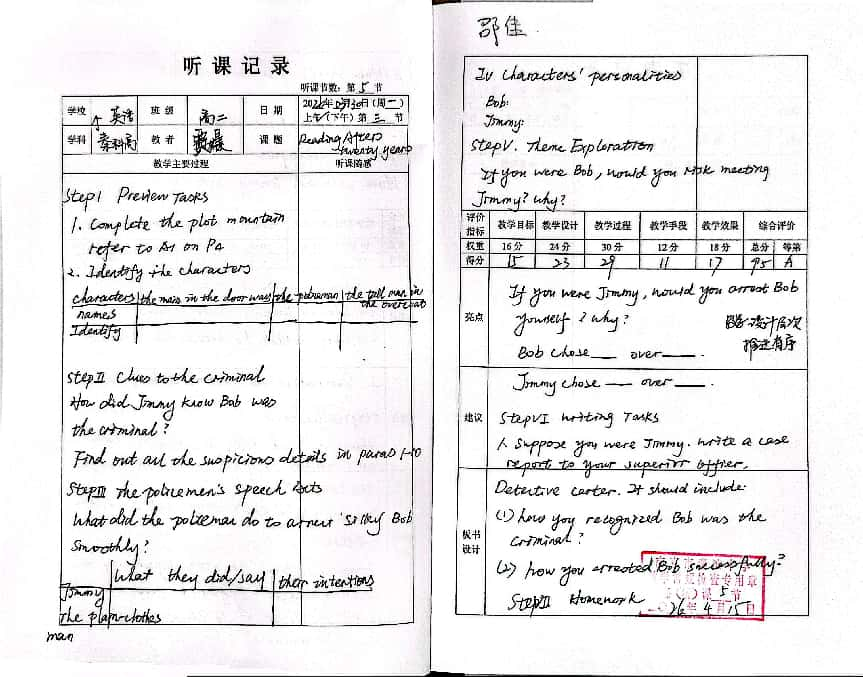 听课记录
听课节数：第 5 节
学校 英语 班级 高二 日期 2026年 月30日(周一)
上午(下午)第 三 节
学科 教者 课题 Reading After
twenty years
教学主要过程 听课随感
Step I Preview Tasks
1. Complete the plot mountain
refer to A1 on P4
2. Identify the characters
characters the man in the doorway the policeman the tall man in
the overcoat
names
Identify
Step II Clues to the criminal
How did Jimmy know Bob was
the criminal?
Find out all the suspicious details in paras 1-10
Step III The policemen's speech acts
What did the policeman do to arrest 'Silky' Bob
smoothly?
What they did/say their intentions
Jimmy
The plain-clothes
man
邵佳
IV Characters' personalities
Bob:
Jimmy:
Step V. Theme Exploration
If you were Bob, would you risk meeting
Jimmy? Why?
评价指标 教学目标 教学设计 教学过程 教学手段 教学效果 综合评价
权重 16分 24分 30分 12分 18分 总分 等第
得分 15 23 29 11 17 95 A
亮点
If you were Jimmy, would you arrest Bob
yourself? Why?
设计层次
推进有序
Bob chose ___ over ___.
Jimmy chose ___ over ___.
建议
Step VI Writing Tasks
1. Suppose you were Jimmy. Write a case
report to your superior offier,
板书设计
Detective Carter. It should include:
(1) how you recognized Bob was the
criminal?
(2) how you arrested Bob successfully?
Step II Homework
检查专用章
课 5 节
2026年4月15日